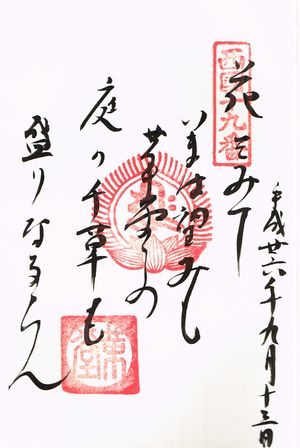 西国十九番
平成廿六年九月十三日
花をみて
いまは望みも
革堂の
庭の千草も
盛りなるらん
革堂